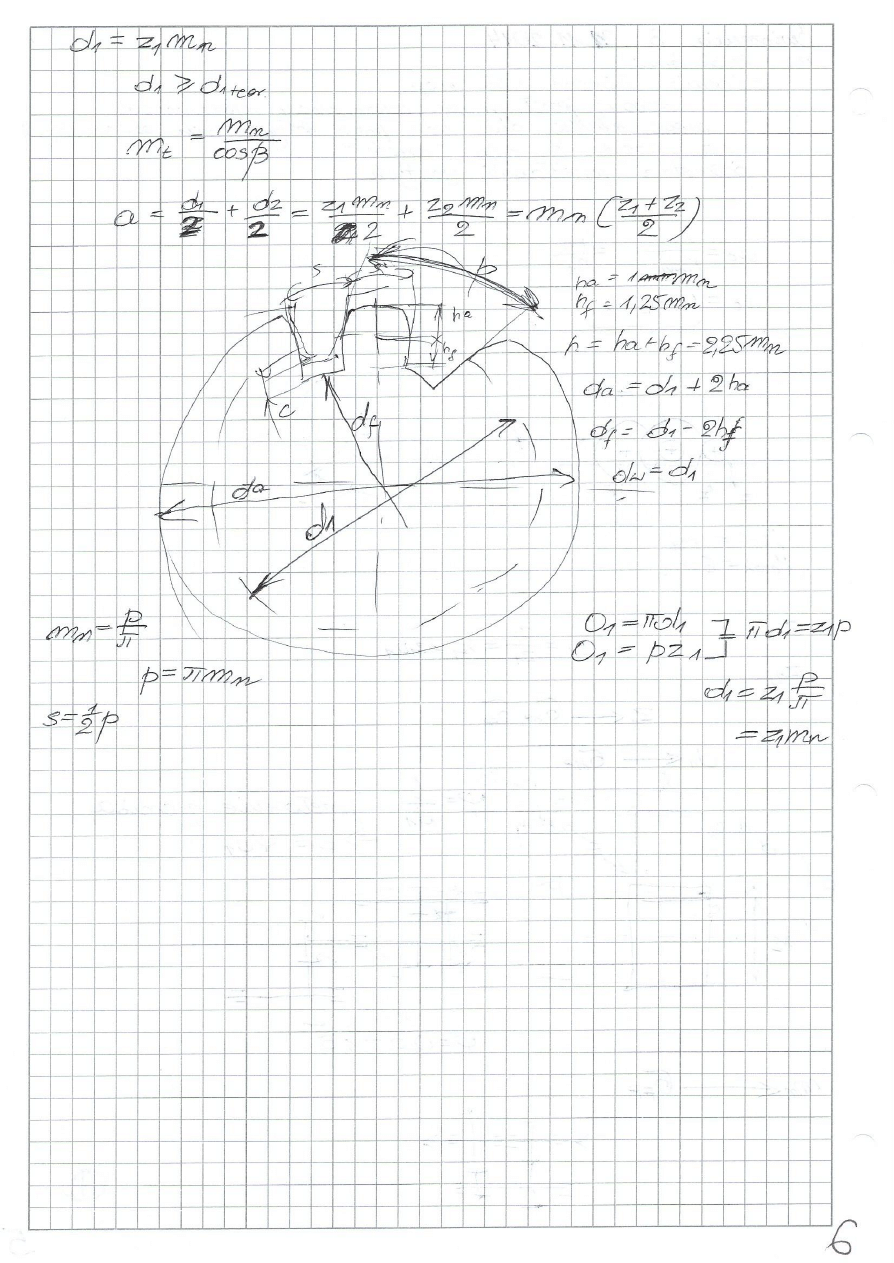 d₁ = z₁ mₙ
d₁ ⩾ d₁teor.
mₜ = mₙ / cosβ
a = d₁/2 + d₂/2 = z₁mₙ/2 + z₂mₙ/2 = mₙ (z₁ + z₂ / 2)
s
p
ha
hf
c
df
da
d₁
ha = 1 mₙ
hf = 1,25 mₙ
h = ha + hf = 2,25 mₙ
da = d₁ + 2ha
df = d₁ - 2hf
dw = d₁
mₙ = p/π
p = π mₙ
s = 1/2 p
O₁ = πd₁
O₁ = pz₁
πd₁ = z₁p
d₁ = z₁ p/π
= z₁mₙ
6